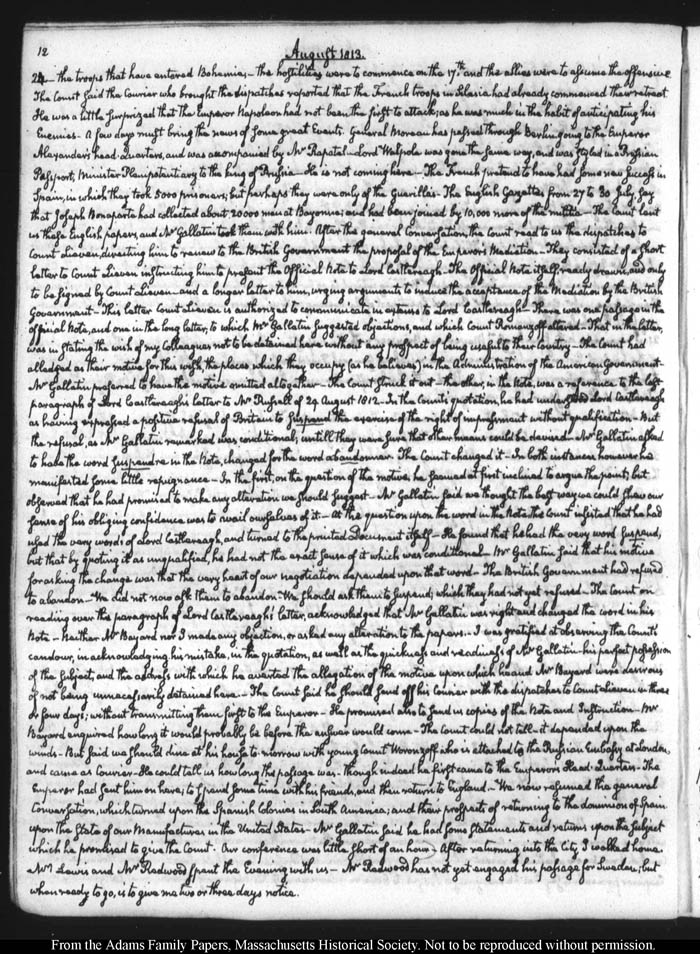 12
August 1813.
24— the troops that have entered Bohemia;— the hostilities were to commence on the 17th. and the allies were to assume the offensive
The Count said the Courier who brought the dispatches reported that the French troops in Silesia had already commenced their retreat
He was a little surprized that the Emperor Napoleon had not been the first to attack; as he was much in the habit of anticipating his
Enemies— A few days must bring the news of some great Events. General Moreau has passed through Berlin going to the Emperor
Alexander's head-Quarters, and was accompanied by Mr Rapatel— Lord Walpole was gone the same way, and was styled in a Prussian
Passport, Minister Plenipotentiary to the king of Prussia— He is not coming here— The French pretend to have had some new success in
Spain, in which they took 5000 prisoners; but perhaps they were only of the Guerillas— The English Gazettes from 27 to 30 July, say
that Joseph Bonaparte had collected about 20000 men at Bayonne; and had been joined by 10,000 more of the militia— The Count lent
us these English papers, and Mr Gallatin took them with him. After this general Conversation, the Count read to us the dispatches to
Count Lieven, directing him to renew to the British Government the proposal of the Emperor's Mediation— They consisted of a short
letter to Count Lieven instructing him to present the Official Note to Lord Castlereagh— The Official Note itself ready drawn, and only
to be signed by Count Lieven— and a longer letter to him, urging arguments to induce the acceptance of the Mediation by the British
Government— This letter Count Lieven is authorized to communicate in extenso to Lord Castlereagh— There was one passage in the
official Note, and one in the long letter, to which Mr Gallatin suggested objections, and which Count Romanzoff altered— That in the letter,
was in stating the wish of my Colleagues not to be detained here without any prospect of being useful to their Country— The Count had
alledged as their motive for this wish, the places which they occupy (as he believes) in the Administration of the American Government—
Mr Gallatin preferred to have the motive omitted altogether— The Count struck it out— the other, in the Note, was a reference to the last
paragraph of Lord Castlereagh's letter to Mr Russell of 29 August 1812— In the Count's quotation, he had Lord Castlereagh
as having expressed a positive refusal of Britain to suspend the exercise of the right of impressment without qualification— But
the refusal, as Mr Gallatin remarked was conditional; until they were sure that other means could be devised— Mr Gallatin asked
to have the word suspendre in the Note, changed for the word abandonner— The Count changed it— In both instances, however he
manifested some little repugnance— In the first, on the question of the motive, he seemed at first inclined to argue the point; but
observed that he had promised to make any alteration we should suggest— Mr Gallatin said we thought the best way we could shew our
sense of his obliging confidence was to avail ourselves of it— At the question upon the word in the Note the Count insisted that he had
used the very words of Lord Castlereagh, and turned to the printed Document itself— He found that he had the very word suspend,
but that by quoting it as unqualified, he had not the exact sense of it which was conditional— Mr Gallatin said that his motive
for asking the change was that the very heart of our negotiation depended upon that word— The British Government had refused
to abandon— We did not now ask them to abandon— We should ask them to suspend; which they had not yet refused— The Count on
reading over the paragraph of Lord Castlereagh's letter, acknowledged that Mr Gallatin was right and changed the word in his
Note— Neither Mr Bayard nor I made any objection, or asked any alteration to the papers— I was gratified at observing the Count's
candour, in acknowledging his mistake, in the quotation, as well as the quickness and readiness of Mr Gallatin— his perfect possession
of the subject, and the address with which he averted the allegation of the motive upon which he and Mr Bayard were desirous
of not being unnecessarily detained here— The Count said he should send off his Courier with the dispatches to Count Lieven in three
or four days; without transmitting them first to the Emperor— He promised also to send us copies of the Note and Instruction— Mr
Bayard enquired how long it would probably be before the answer would come— The Count could not tell— it depended upon the
winds— But said we should dine at his house to-morrow with young Count Woronzoff who is attached to the Russian Embassy at London,
and came as Courier— He could tell us how long the passage was— though indeed he first came to the Emperor's Head-Quarters— The
Emperor had sent him on here, to spend some time with his friends, and then return to England— We now resumed the general
Conversation, which turned upon the Spanish Colonies in South America; and their prospects of returning to the dominion of Spain
upon the State of our Manufactures in the United States— Mr Gallatin said he had some statements and returns upon the subject
which he promised to give the Count. Our conference was little short of an hour— After returning into the City, I walked home
Mr Lewis and Mr Redwood spent the Evening with us— Mr Redwood has not yet engaged his passage for Sweden; but
when ready to go, is to give me two or three days notice.
From the Adams Family Papers, Massachusetts Historical Society. Not to be reproduced without permission.